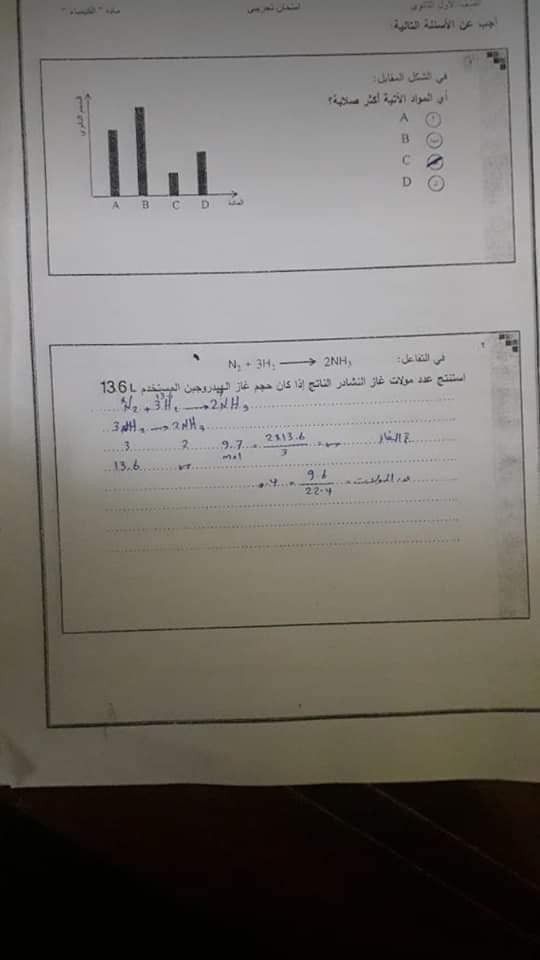 مادة " الكيمياء "
امتحان تجريبي
الصف الأول الثانوي
أجب عن الأسئلة التالية:
في الشكل المقابل:
أي المواد الآتية أكثر صلابة؟
A أ
B ب
C
D د
A B C D المادة
٢
في التفاعل: N₂ + 3H₂ ⟶ 2NH₃
استنتج عدد مولات غاز النشادر الناتج إذا كان حجم غاز الهيدروجين المستخدم 13.6 L
N₂ + 3H₂ ⟶ 2NH₃
⟶ 2NH₃
3 2 9.7 = 2x13.6 / 3 =
mol
13.6
= 9.6 / 22.4 =